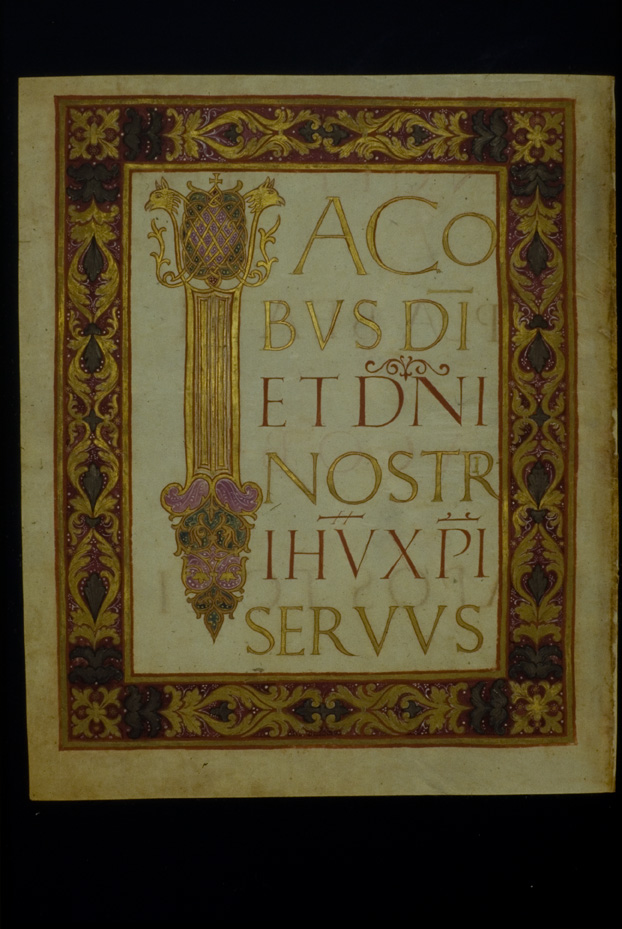 IACO
BVS DI
ET DNI
NOSTR
IHV XPI
SERVVS